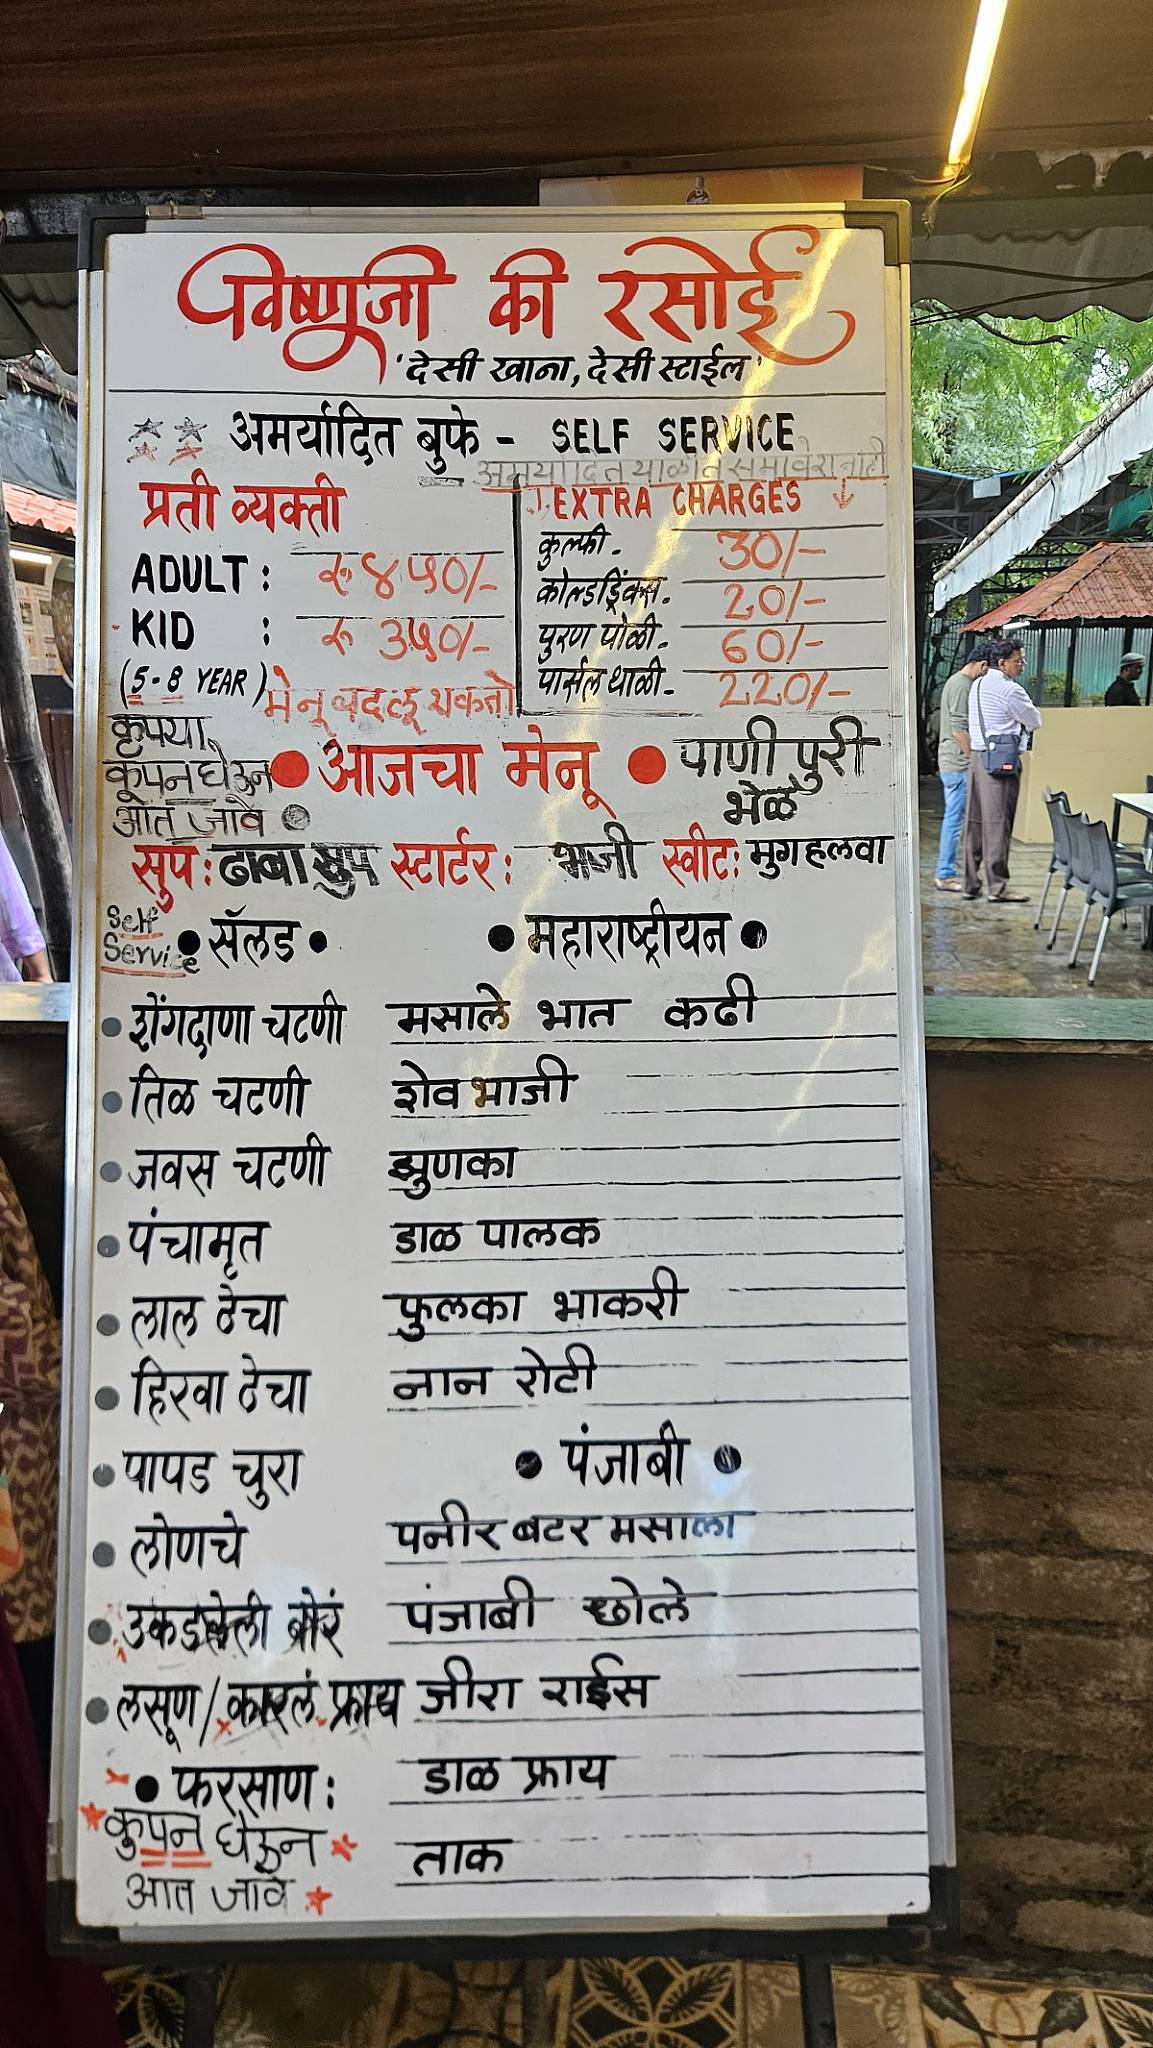 विष्णुजी की रसोई
'देसी खाना, देसी स्टाईल'
अमर्यादित बुफे - SELF SERVICE
अमर्यादित थाळीत समावेश नाही
प्रती व्यक्ती
ADULT : रु ४५०/-
KID : रु ३५०/-
(5-8 YEAR)
मेनू बदलू शकतो
EXTRA CHARGES
कुल्फी - 30/-
कोल्डड्रिंक्स - 20/-
पुरण पोळी - 60/-
पार्सल थाळी - 220/-
कृपया
कूपन घेऊन
आत जावे
आजचा मेनू
पाणी पुरी
भेळ
सुप : ढाबा सुप स्टार्टर : भजी स्वीट : मुग हलवा
Self
Service
सॅलड
शेंगदाणा चटणी
तिळ चटणी
जवस चटणी
पंचामृत
लाल ठेचा
हिरवा ठेचा
पापड चुरा
लोणचे
उकडलेली बोरं
लसूण / कारलं फ्राय
फरसाण :
कुपन घेऊन
आत जावे
महाराष्ट्रीयन
मसाले भात कढी
शेव भाजी
झुणका
डाळ पालक
फुलका भाकरी
नान रोटी
पंजाबी
पनीर बटर मसाला
पंजाबी छोले
जीरा राईस
डाळ फ्राय
ताक